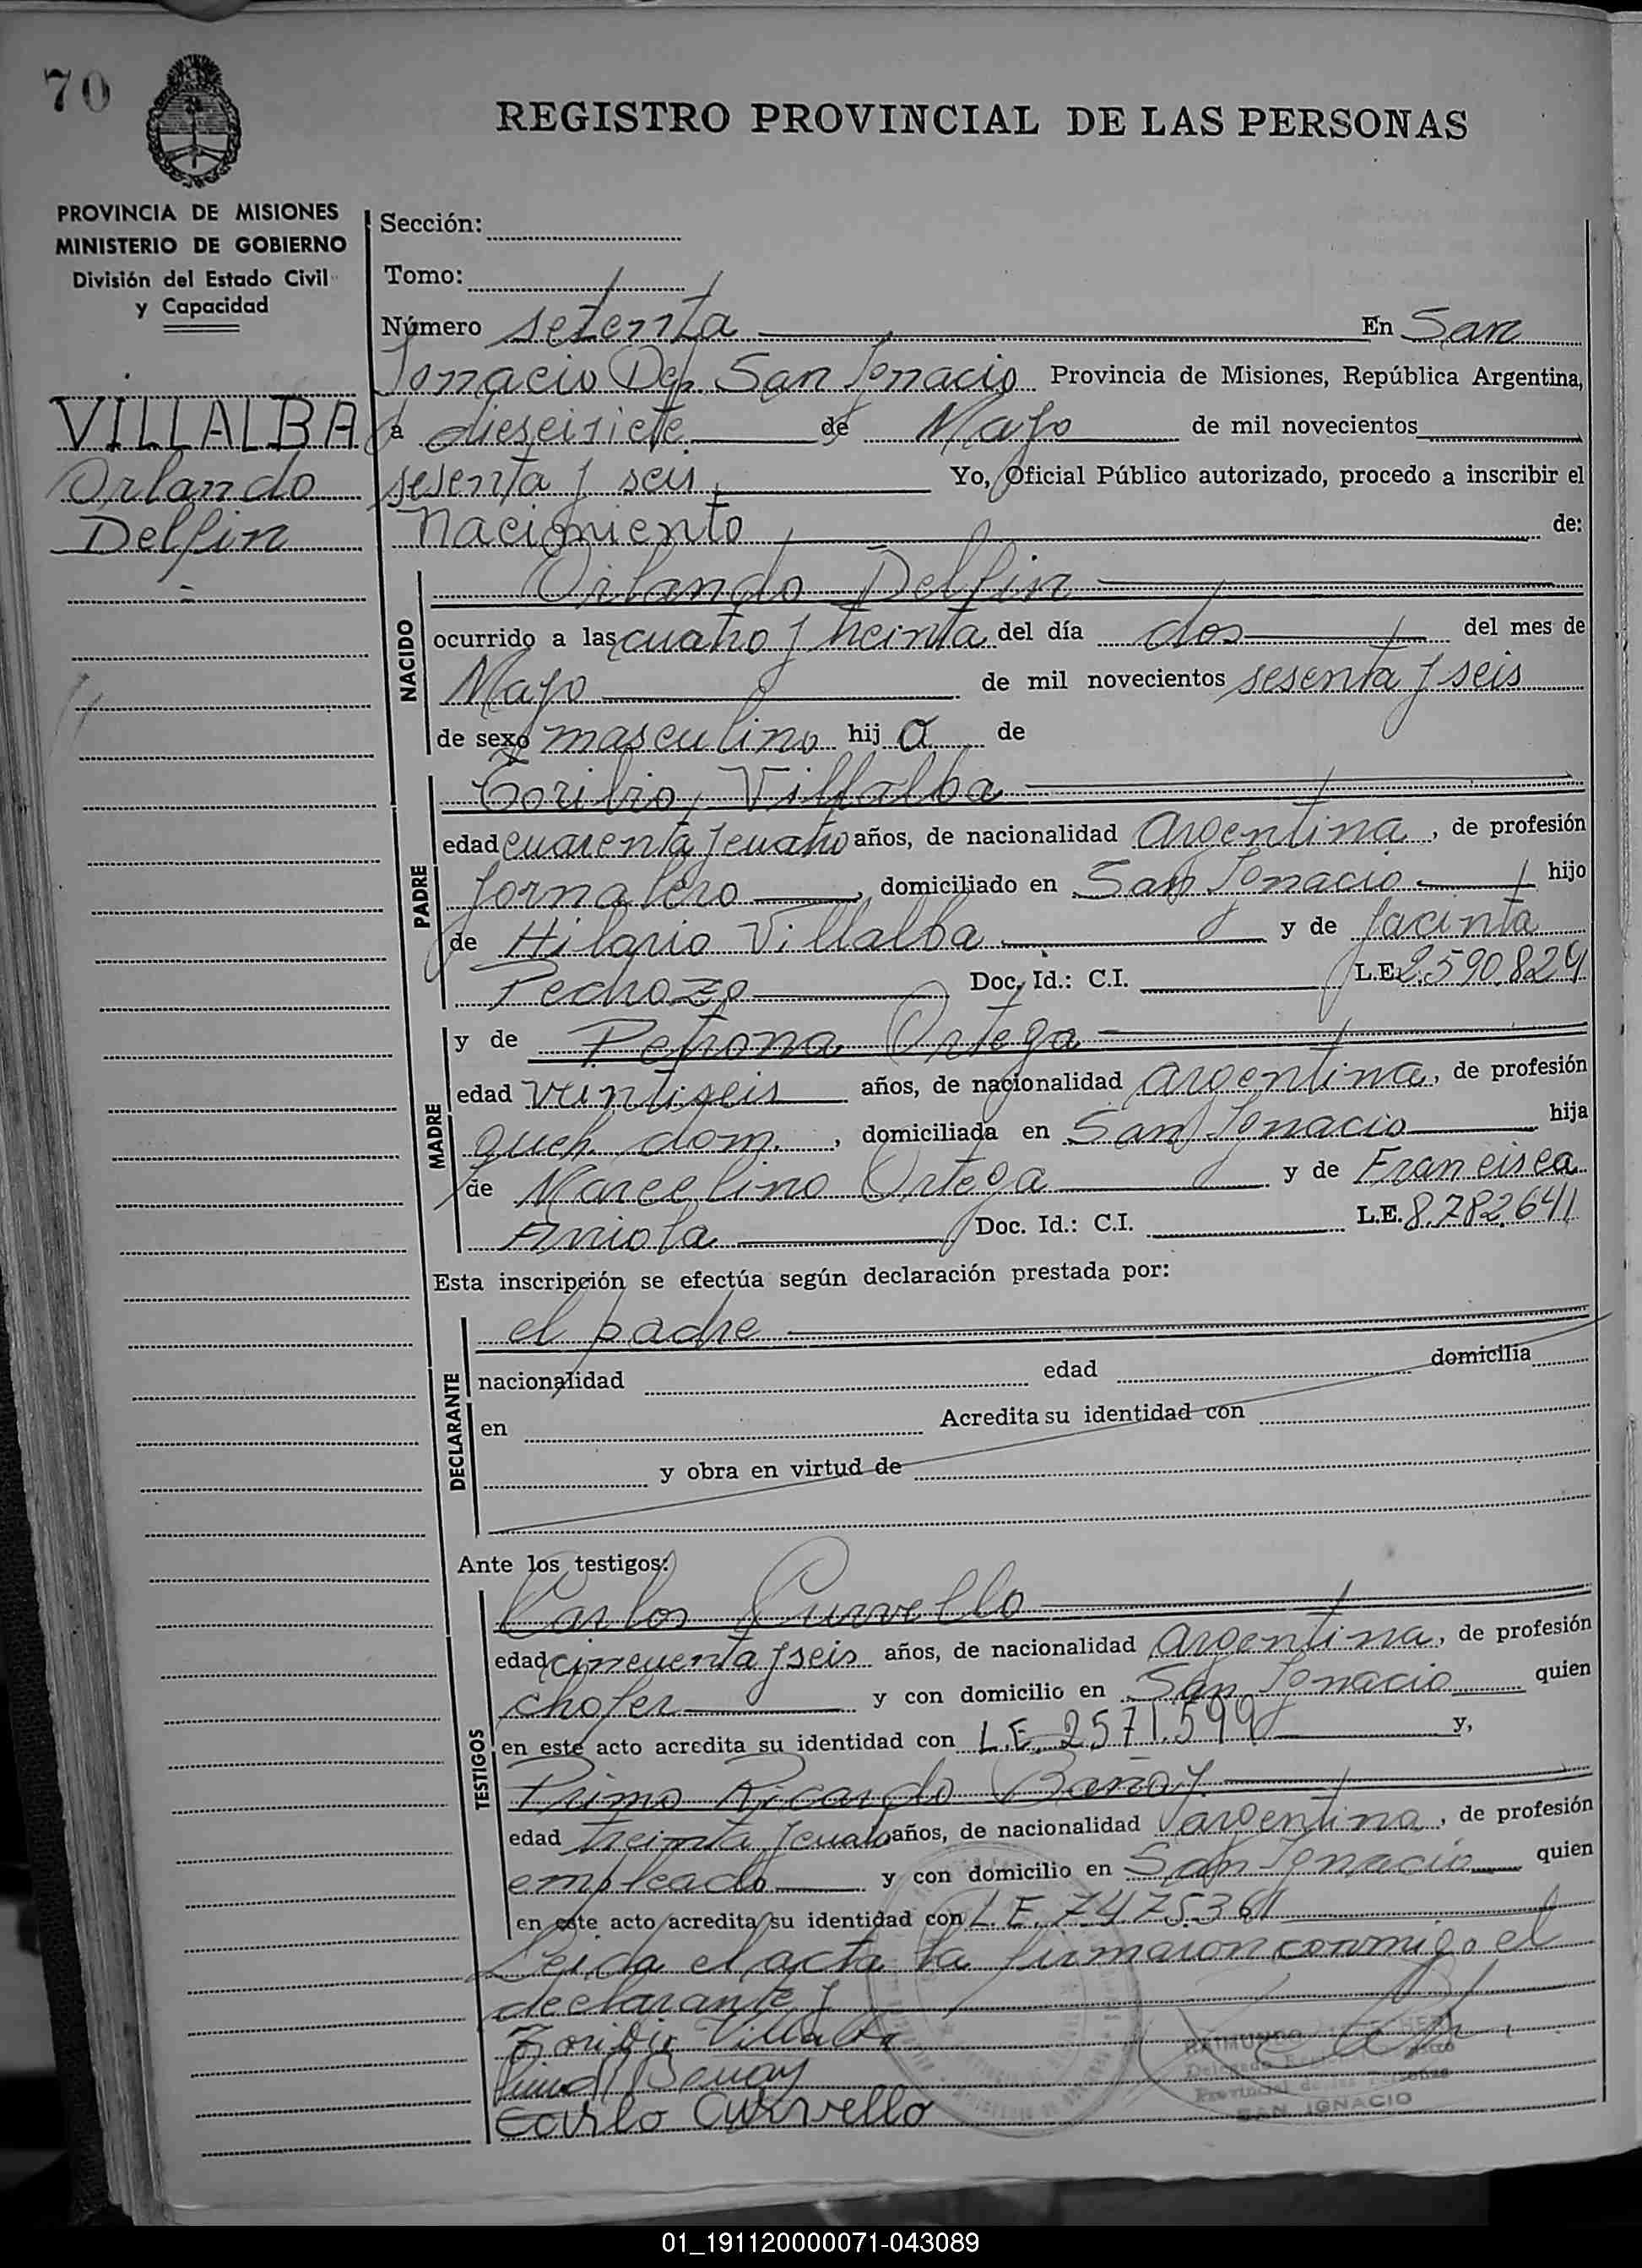 70
REGISTRO PROVINCIAL DE LAS PERSONAS
PROVINCIA DE MISIONES
MINISTERIO DE GOBIERNO
División del Estado Civil
y Capacidad
VILLALBA
Orlando
Delfin
Sección:
Tomo:
Número setenta En San
Ignacio Dep. San Ignacio Provincia de Misiones, República Argentina,
a dieseisiete de Mayo de mil novecientos
sesenta y seis Yo, Oficial Público autorizado, procedo a inscribir el
nacimiento de:
NACIDO
Orlando Delfin
ocurrido a las cuatro y treinta del día dos del mes de
Mayo de mil novecientos sesenta y seis
de sexo masculino hij o de
PADRE
Toribio Villalba
edad cuarenta y cuatro años, de nacionalidad argentina, de profesión
Jornalero, domiciliado en San Ignacio hijo
de Hilario Villalba y de Jacinta
Pedrozo Doc. Id.: C.I. L.E. 2.590.824
MADRE
y de Petrona Ortega
edad veintiseis años, de nacionalidad argentina, de profesión
queh. dom., domiciliada en San Ignacio hija
de Marcelino Ortega y de Francisca
Doc. Id.: C.I. L.E. 8.782.641
Esta inscripción se efectúa según declaración prestada por:
DECLARANTE
el padre
nacionalidad edad domicilia
en Acredita su identidad con
y obra en virtud de
Ante los testigos:
TESTIGOS
Carlos Curvello
edad cincuenta y seis años, de nacionalidad argentina, de profesión
chofer y con domicilio en San Ignacio quien
en este acto acredita su identidad con L.E. 2571.599 y,
Primo Ricardo
edad treinta y cuatro años, de nacionalidad argentina, de profesión
empleado y con domicilio en San Ignacio quien
en este acto acredita su identidad con L.E. 7475361
Leida el acta la firmaron conmigo el
declarante y
Toribio Villalba
Carlo Curvello
SAN IGNACIO
01_191120000071-043089